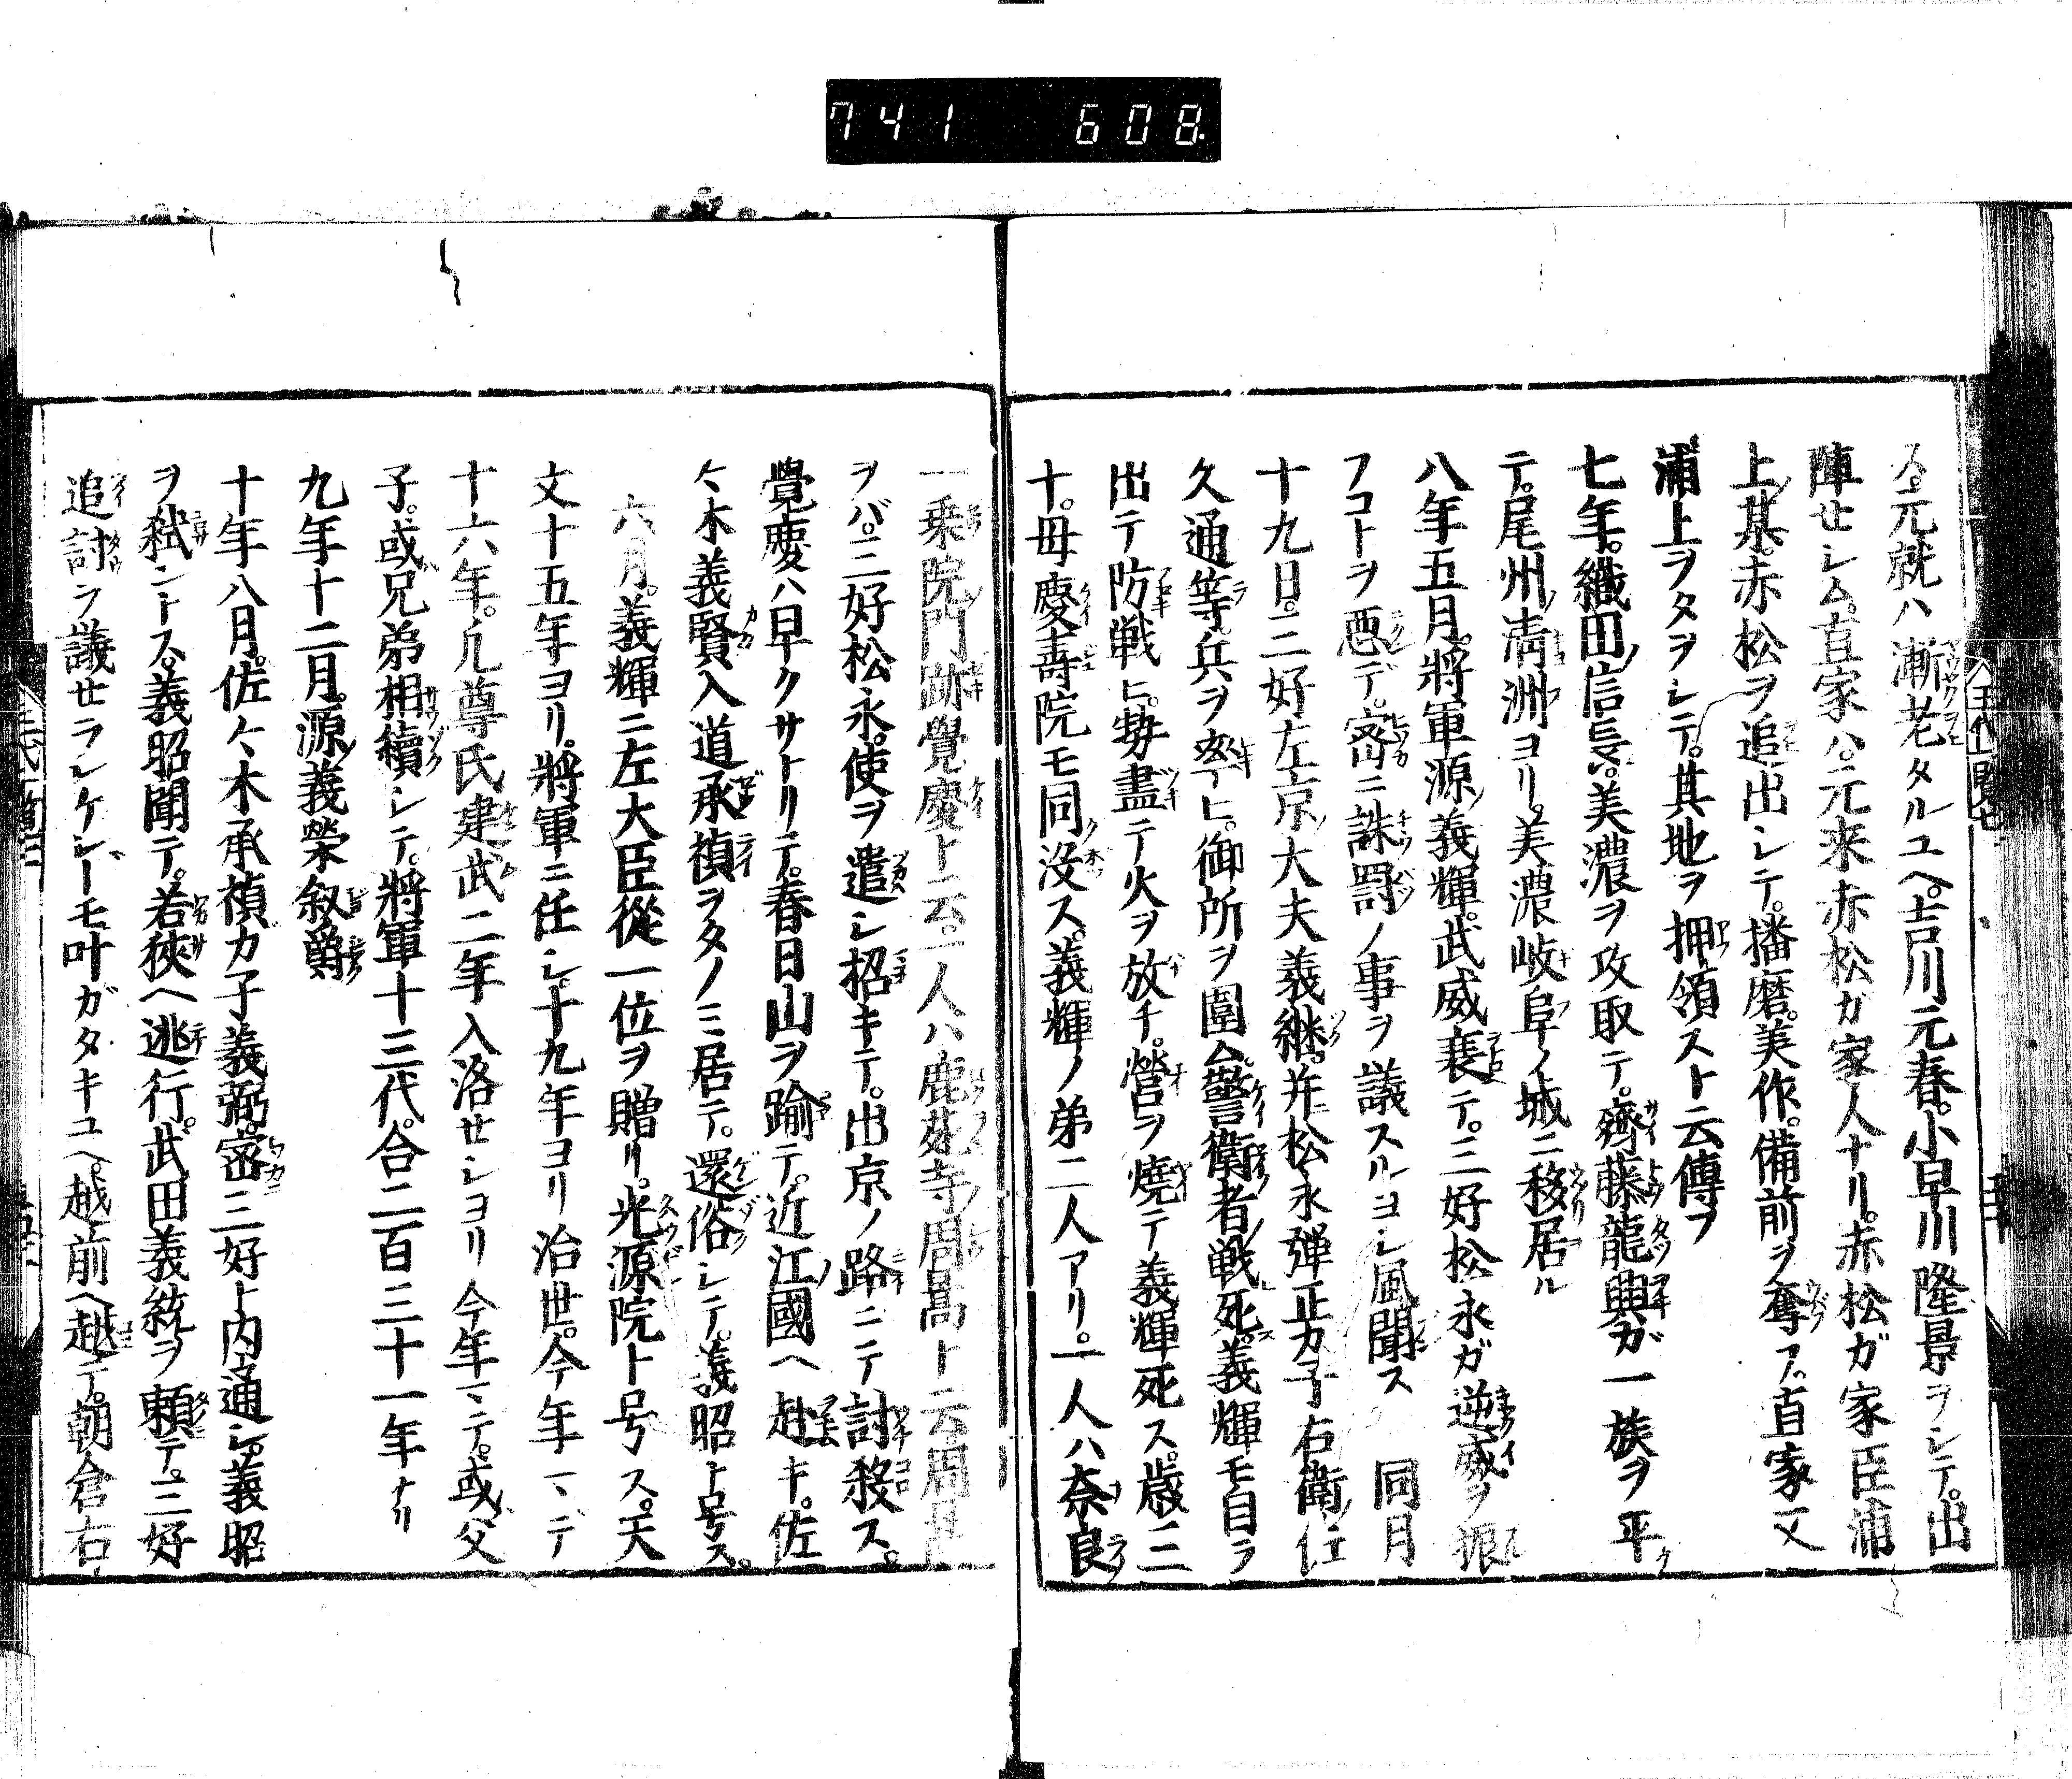 741 608
ス。元就ハ漸老タルユヘ。吉川元春。小早川隆景ヲシテ。出
陣セシム。直家ハ。元来赤松ガ家人ナリ。赤松ガ家臣浦
上某。赤松ヲ追出シテ。播磨。美作。備前ヲ奪フ。直家又
浦上ヲタヲシテ。其地ヲ押領スト云傳フ
七年。織田信長。美濃ヲ攻取テ。齊藤龍興ガ一族ヲ平
テ。尾州清洲ヨリ。美濃岐阜ノ城ニ移居ル
八年五月。將軍源義輝。武威衰テ。三好松永ガ逆威ヲ振
フコトヲ惡デ。密ニ誅罰ノ事ヲ議スルヨシ風聞ス 同月
十九日。三好左京大夫義継。并松永弾正カ子右衛門佐
久通等。兵ヲ率ヒ。御所ヲ圍ム。警衛者戦死。義輝モ自ラ
出テ防戦ヒ。勢盡テ火ヲ放チ。營ヲ燒テ義輝死ス。歳三
十。母慶壽院モ同没ス。義輝ノ弟二人アリ。一人ハ奈良
一乗院門跡覺慶ト云。一人ハ鹿苑寺周暠ト云周暠
ヲバ。三好松永。使ヲ遣シ招キテ。出京ノ路ニテ討殺ス。
覺慶ハ早クサトリテ。春日山ヲ踰テ。近江國ヘ赴キ。佐
々木義賢入道承禎ヲタノミ居テ。還俗シテ。義昭ト号ス。
六月。義輝ニ左大臣從一位ヲ贈リ。光源院ト号ス。天
文十五年ヨリ。將軍ニ任シ十九年ヨリ治世。今年マデ
十六年。凡尊氏建武二年入洛セシヨリ今年マテ。或父
子。或兄弟相續シテ。將軍十三代。合二百三十一年ナリ
九年十二月。源義榮叙爵
十年八月。佐々木承禎カ子義弼。密三好ト内通シ。義昭
ヲ弑ントス。義昭聞テ。若狹ヘ逃行。武田義統ヲ頼テ。三好
追討ヲ議セラレケレドモ叶ガタキユヘ。越前ヘ越テ。朝倉右